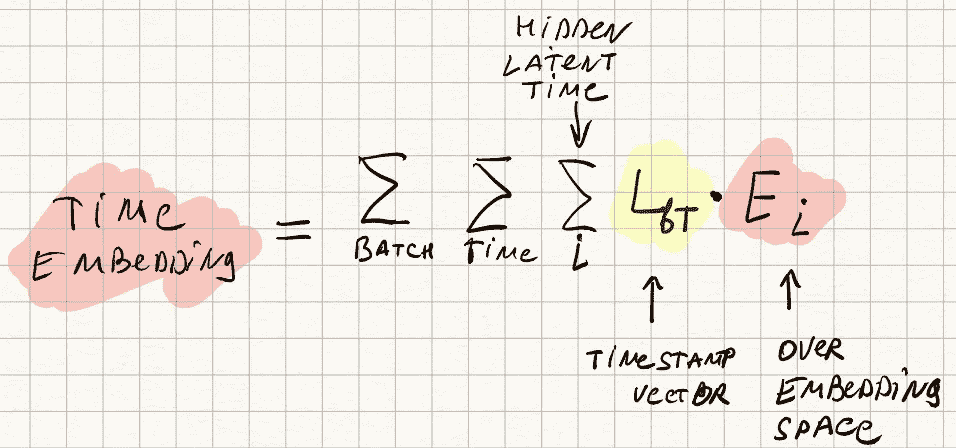 HIDDEN
LATENT
TIME
TIME
EMBEDDING
= Σ Σ Σ L_bT · E_i
BATCH TIME i
TIMESTAMP
VECTOR
OVER
EMBEDDING
SPACE